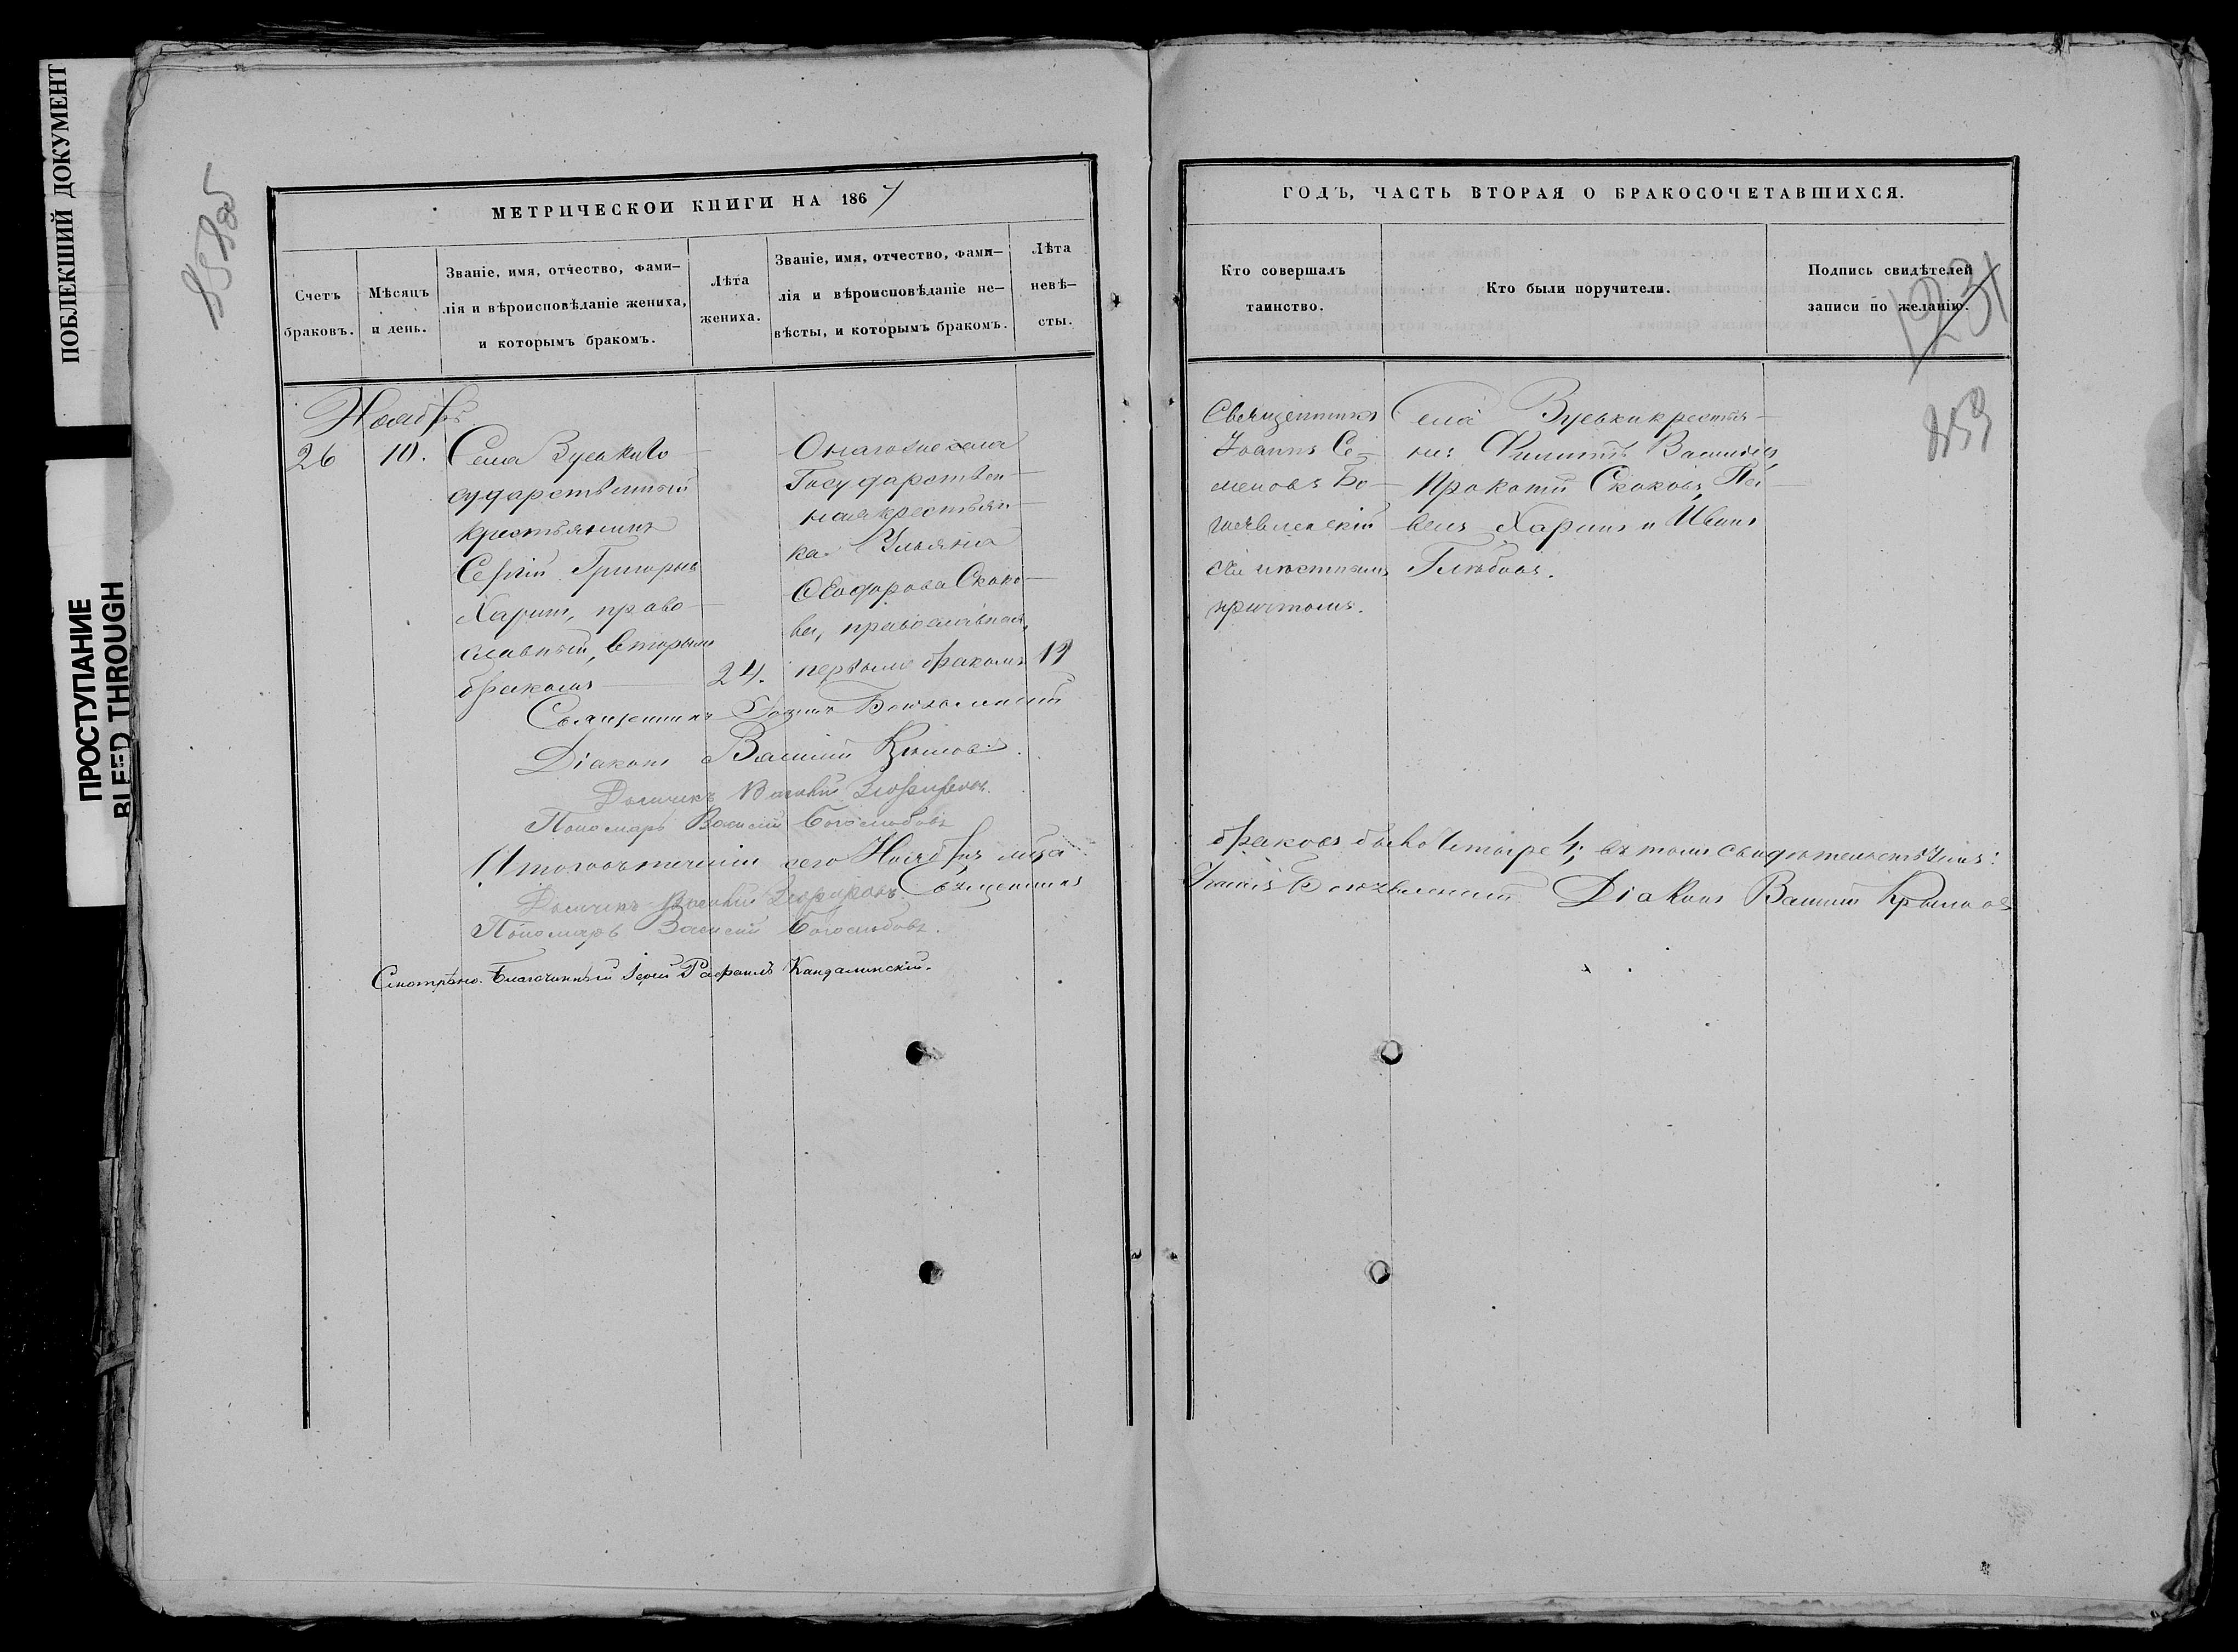 ПОБЛЕКШИЙ ДОКУМЕНТ
ПРОСТУПАНИЕ
BLEED THROUGH
МЕТРИЧЕСКОЙ КНИГИ НА 1867
Счетъ браковъ.
Мѣсяцъ и день.
Званіе, имя, отчество, фами-
лія и вѣроисповѣданіе жениха,
и которымъ бракомъ.
Лѣта жениха.
Званіе, имя, отчество, фами-
лія и вѣроисповѣданіе не-
вѣсты, и которымъ бракомъ.
Лѣта
невѣ-
сты.
Ноябрь
26
10.
Села Зуевки Го-
сударственный
крестьянинъ
Сергій Григорьев
Харин, право-
славный, вторымъ
бракомъ
24.
Онагоже села
Государствен-
ная крестьян-
ка Ульяна
Ѳеодорова Скоко-
ва, православная,
первымъ бракомъ
19
Священникъ Іоаннъ Богоявленскій
Діаконъ Василій Крыловъ.
Дьячекъ Василій
Пономарь Василій Боголюбовъ
Итого въ теченіи сего Ноября мѣсяца
Дьячекъ Василій
Священникъ
Пономарь Василій Боголюбовъ.
Смотрѣно. Благочинный Іерей Рафаилъ Кандалинскій.
ГОДЪ, ЧАСТЬ ВТОРАЯ О БРАКОСОЧЕТАВШИХСЯ.
Кто совершалъ
таинство.
Кто были поручители.
Подпись свидѣтелей
записи по желанію.
1231
859
Священникъ
Іоаннъ Се-
меновъ Бо-
гоявленскій
съ
причтомъ.
Села Зуевки крестья-
не: Филиппъ Васильев,
Прокопій Скоковъ, Па-
велъ Харинъ и Иванъ
Глѣбовъ.
браковъ было четыре 4; въ томъ свидѣтельствуемъ:
Іоаннъ Богоявленскій Діаконъ Василій Крыловъ